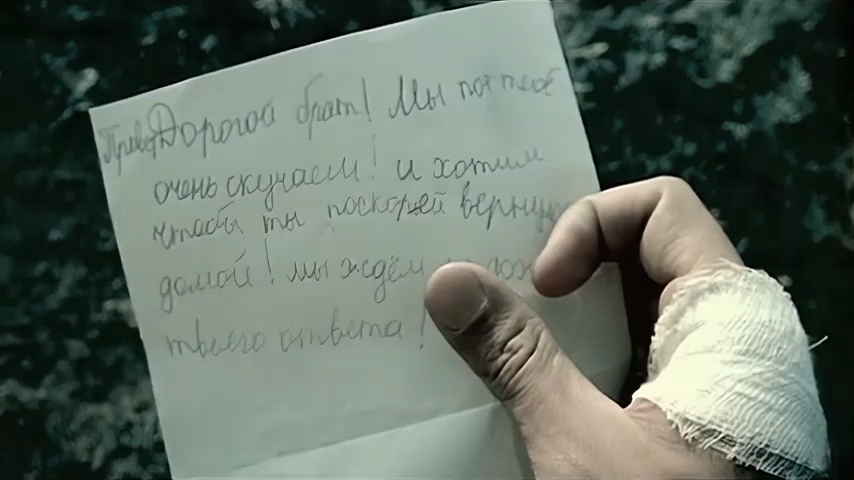 Привет Дорогой брат! Мы по тебе
очень скучаем! и хотим
чтобы ты поскорей
домой! мы ждём
твоего ответа!